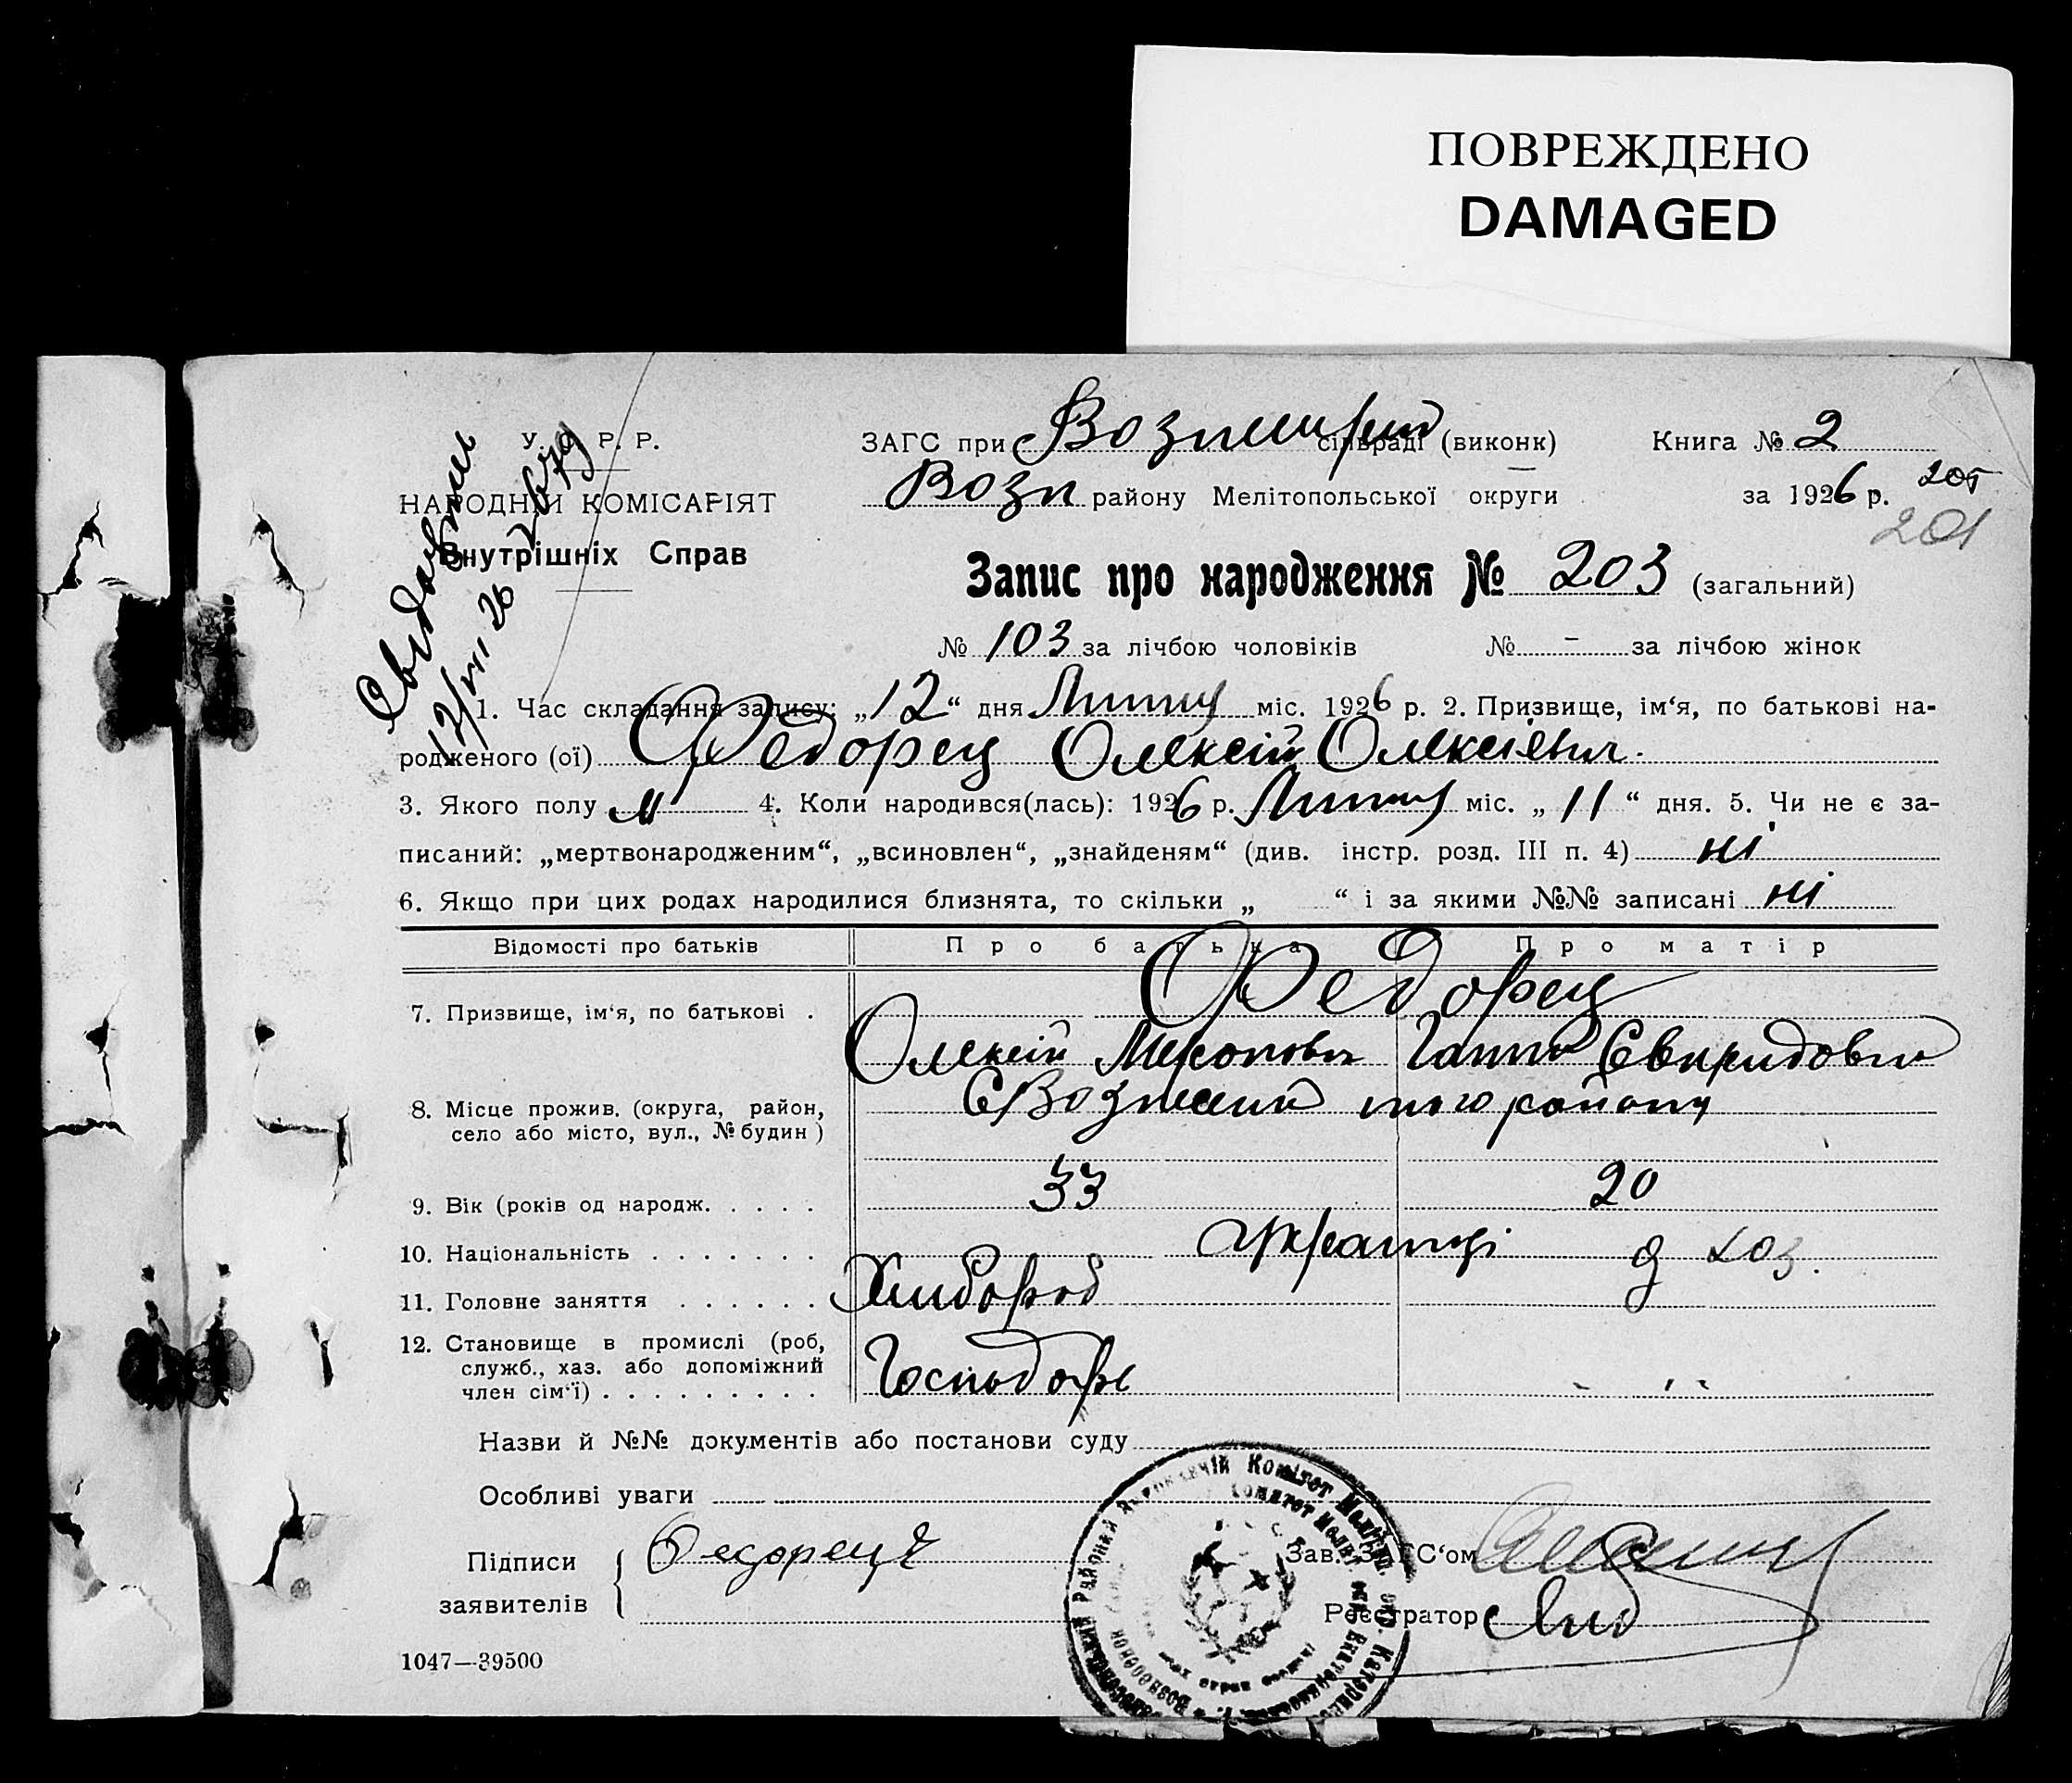 ПОВРЕЖДЕНО
DAMAGED
У. С. Р. Р.
НАРОДНІЙ КОМІСАРІЯТ
Внутрішніх Справ
ЗАГС при сільраді (виконк)
Книга № 2
Возн району Мелітопольської округи
за 1926 р.
205
201
Запис про народження № 203 (загальний)
№ 103 за лічбою чоловіків № – за лічбою жінок
1. Час складання запису: „12“ дня Липня міс. 1926 р. 2. Призвище, ім‘я, по батькові на-
родженого (ої) Федорец Олексій Олексієвич.
3. Якого полу м 4. Коли народився(лась): 1926 р. Липня міс. „11“ дня. 5. Чи не є за-
писаний: „мертвонародженим“, „всиновлен“, „знайденям“ (див. інстр. розд. III п. 4) ні
6. Якщо при цих родах народилися близнята, то скільки „ “ і за якими №№ записані ні
Відомості про батьків Про батька Про матір
7. Призвище, ім‘я, по батькові . Федорец
Олексій Миронович Ганна Свиридовна
8. Місце прожив. (округа, район,
село або місто, вул., № будин) того району
9. Вік (років од народж. . . . . 33 20
10. Національність . . . . . . . українці
11. Головне заняття . . . . . . Хлібороб д хоз.
12. Становище в промислі (роб,
служб., хаз. або допоміжний
член сім‘ї) . . . . . . . . . Господарь
Назви й №№ документів або постанови суду
Особливі уваги
Підписи
заявителів
Федорець
Зав. ЗАГС‘ом
Реєстратор
1047—39500